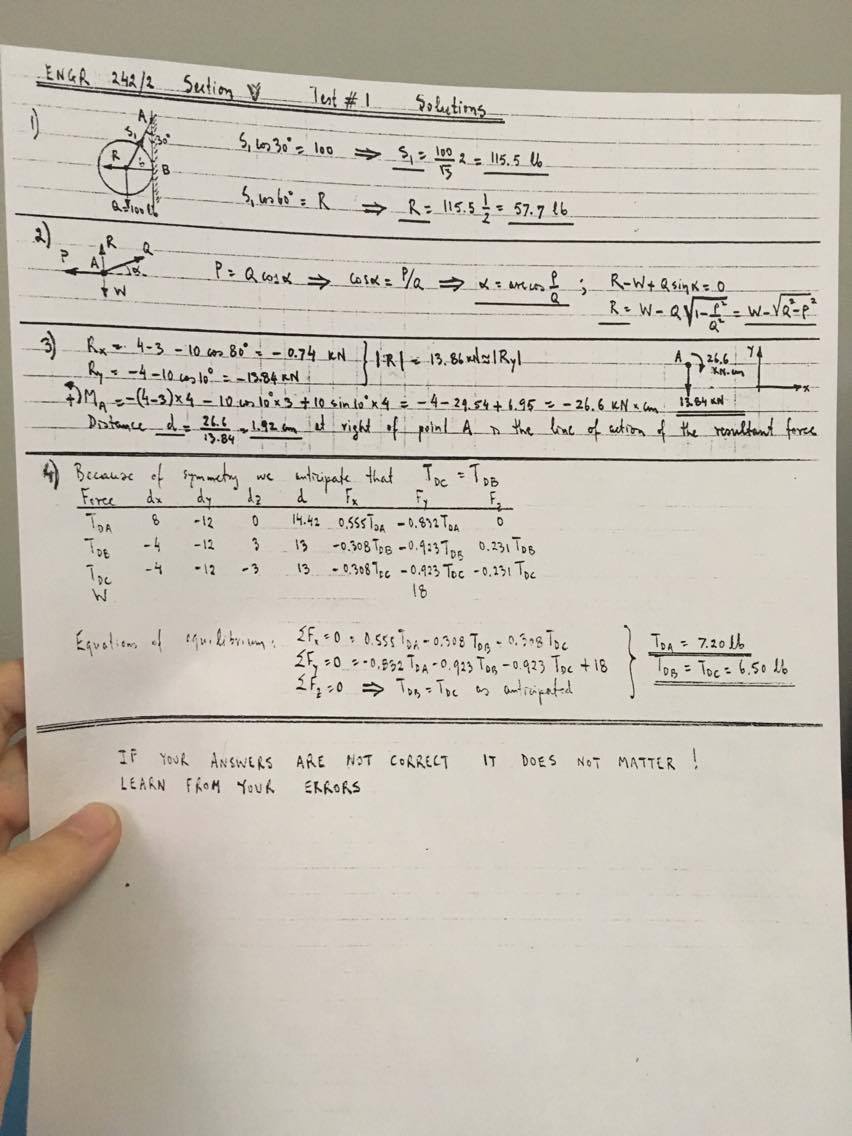 ENGR 242/2 Section V Test #1 Solutions
1)
A
S₁ 30°
R
B
Q=100 lb
S₁ cos 30° = 100 ⇒ S₁ = 100/√3 2 = 115.5 lb
S₁ cos 60° = R ⇒ R = 115.5 1/2 = 57.7 lb
2)
R Q
P A α
W
P = Q cos α ⇒ cos α = P/Q ⇒ α = arc cos P/Q ; R-W+Q sin α = 0
R = W - Q √(1-P²/Q²) = W-√(Q²-P²)
3) Rx = 4-3-10 cos 80° = -0.74 KN
Ry = -4-10 cos 10° = -13.84 KN } |R| = 13.86 KN ≈ |Ry|
A 26.6 KN.cm Y x
13.84 KN
+) MA = -(4-3)×4 - 10 cos 10° × 3 + 10 sin 10° × 4 = -4-29.54 + 6.95 = -26.6 KN × cm
Distance d = 26.6/13.84 = 1.92 cm at right of point A is the line of action of the resultant force
4) Because of symmetry we anticipate that TDC = TDB
Force dx dy dz d Fx Fy Fz
TDA 8 -12 0 14.42 0.555TDA -0.832TDA 0
TDB -4 -12 3 13 -0.308TDB -0.923TDB 0.231TDB
TDC -4 -12 -3 13 -0.308TDC -0.923TDC -0.231TDC
W 18
Equations of equilibrium: ΣFx=0 = 0.555TDA-0.308TDB-0.308TDC
ΣFy=0 = -0.832TDA-0.923TDB-0.923TDC+18
ΣFz=0 ⇒ TDB=TDC as anticipated
} TDA = 7.20 lb
TDB = TDC = 6.50 lb
IF YOUR ANSWERS ARE NOT CORRECT IT DOES NOT MATTER !
LEARN FROM YOUR ERRORS